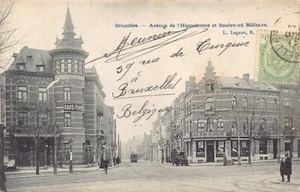 Bruxelles. — Avenue de l'Hippodrome et Boulevard Militaire.
L. Lagaert, B.
Meunier
39 rue de Turquie
à Bruxelles
Belgique